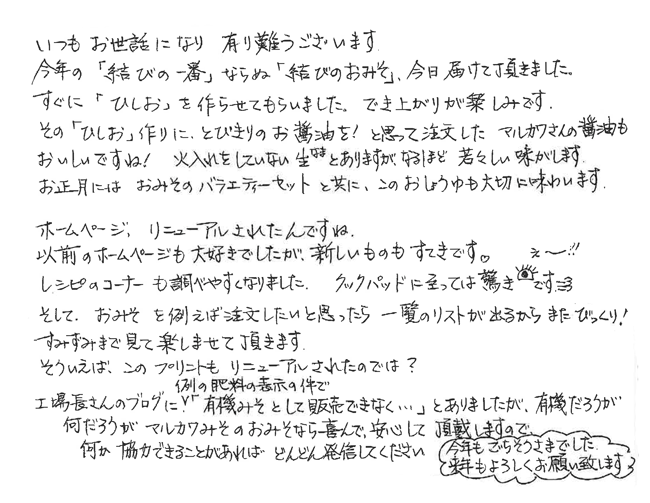 いつも お世話になり 有り難うございます
今年の「結びの一番」ならぬ「結びのおみそ」、今日届けて頂きました。
すぐに「ひしお」を作らせてもらいました。でき上がりが楽しみです.
その「ひしお」作りに、とびきりのお醤油を! と思って注文した マルカワさんの醤油も
おいしいですね! 火入れをしていない 生味とありますが、なるほど 若々しい 味がします.
お正月には おみそのバラエティーセット と共に、このおしょうゆも大切に味わいます.
ホームページ, リニューアルされたんですね.
以前のホームページも大好きでしたが、新しいものも すてきです。 え〜!!
レシピのコーナーも調べやすくなりました. クックパッドに至っては驚きです
そして、おみそを例えば注文したいと思ったら 一覧のリストが出るからまたびっくり!
すみずみまで見て楽しませて頂きます.
そういえば、このプリントも リニューアルされたのでは?
例の肥料の表示の件で
工場長さんのブログに「有機みそとして販売できなく…」とありましたが、有機だろうが
何だろうが マルカワみそのおみそなら喜んで、安心して 頂戴しますので、
何か 協力できることがあれば どんどん発信してください
今年もごちそうさまでした.
来年もよろしくお願い致します